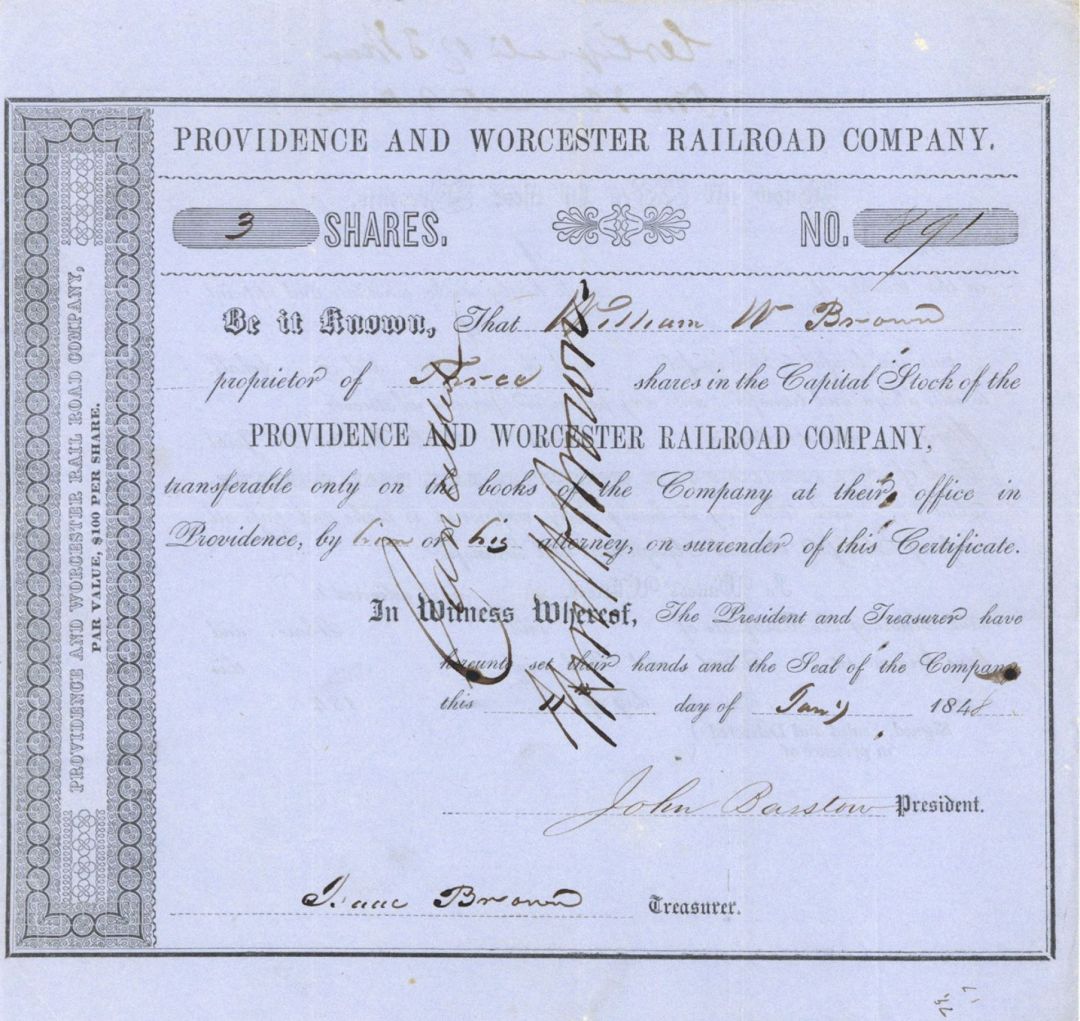 PROVIDENCE AND WORCESTER RAIL ROAD COMPANY,
PAR VALUE, $100 PER SHARE.
PROVIDENCE AND WORCESTER RAILROAD COMPANY.
3 SHARES. NO. 891
Be it Known, That William W Brown
proprietor of Three shares in the Capital Stock of the
PROVIDENCE AND WORCESTER RAILROAD COMPANY,
transferable only on the books of the Company at their office in
Providence, by him or his attorney, on surrender of this Certificate.
In Witness Whereof, The President and Treasurer have
hereunto set their hands and the Seal of the Company
this 11 day of Jany 1848
Cancelled
Wm W Brown
John Barstow President.
Isaac Brown Treasurer.